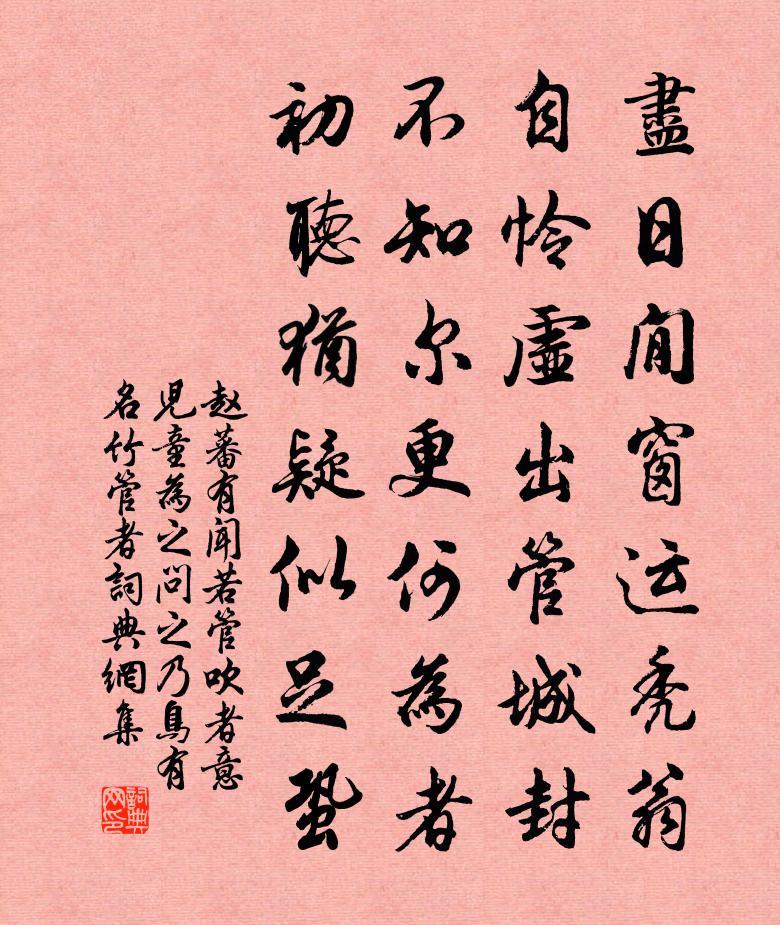 盡日閒窗运秃翁
自怜虛出管城封
不知尔更何為者
初聽猶疑似足蛩
赵蕃有闻若管吹者意
児童為之问之乃鳥有
名竹管者詞典網集
詞典网印